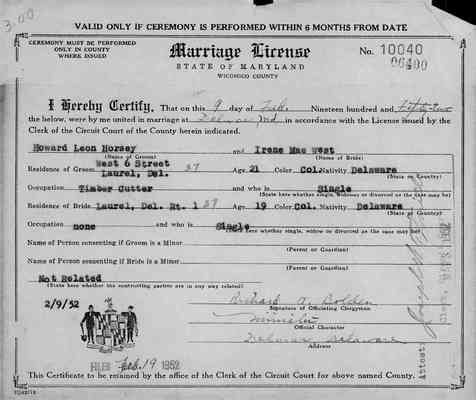 3.00
VALID ONLY IF CEREMONY IS PERFORMED WITHIN 6 MONTHS FROM DATE
CEREMONY MUST BE PERFORMED
ONLY IN COUNTY
WHERE ISSUED
Marriage License
STATE OF MARYLAND
WICOMICO COUNTY
No. 10040
06400
I Hereby Certify, That on this 9 day of Feb. Nineteen hundred and, fifty-two
the below, were by me united in marriage at Delmar, Md in accordance with the License issued by the
Clerk of the Circuit Court of the County herein indicated.
Howard Leon Horsey and Irene Mae West
(Name of Groom) (Name of Bride)
West 6 Street
Residence of Groom Laurel, Del. 37 Age 21 Color Col. Nativity Delaware
(State or Country)
Occupation Timber Cutter and who is Single
(State here whether single, widower or divorced as the case may be)
Residence of Bride Laurel, Del. Rt. 1 37 Age 19 Color Col. Nativity Delaware
(State or Country)
Occupation none and who is Single
(State here whether single, widow or divorced as the case may be)
Name of Person consenting if Groom is a Minor
(Parent or Guardian)
Name of Person consenting if Bride is a Minor
(Parent or Guardian)
Not Related
(State here whether the contracting parties are in any way related)
2/9/52
Richard A. Bolden
Signature of Officiating Clergyman
Minister
Official Character
Delmar Delaware
Address
FILED Feb. 19 1952
Attest:
This Certificate to be retained by the office of the Clerk of the Circuit Court for above named County.